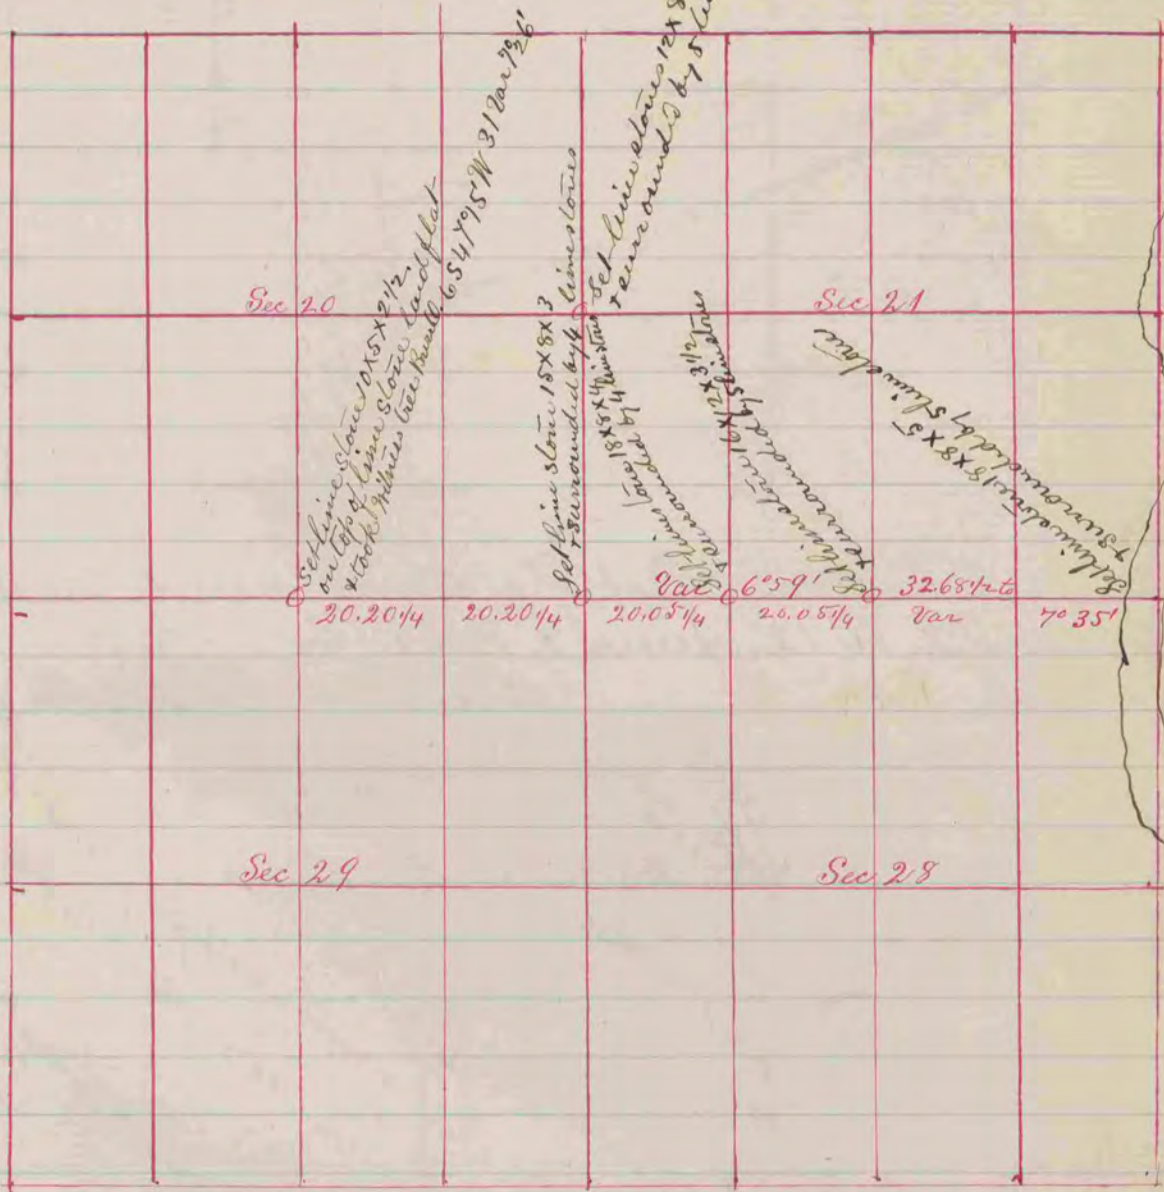 Set lime stone 10x5x2 1/2.
on top of lime stone laid flat
& took witness tree 6 S 47°15' W 31 Var 7°26'
Set lime stone 15x8x3
& surrounded by 4 lime stones
Set lime stones 12x8
& surrounded by 5
Set lime stone 18x8x4
& surrounded by 4 lime stones
Set lime stone 16x12x3 1/2
& surrounded by 5 lime stones
Set lime stone 18x8x5
& surrounded by 5 lime stone
Sec 20
Sec 21
Var 6°59'
32.68 1/2 to
20.20 1/4
20.20 1/4
20.05 1/4
20.05 1/4
Var 7° 35'
Sec 29
Sec 28